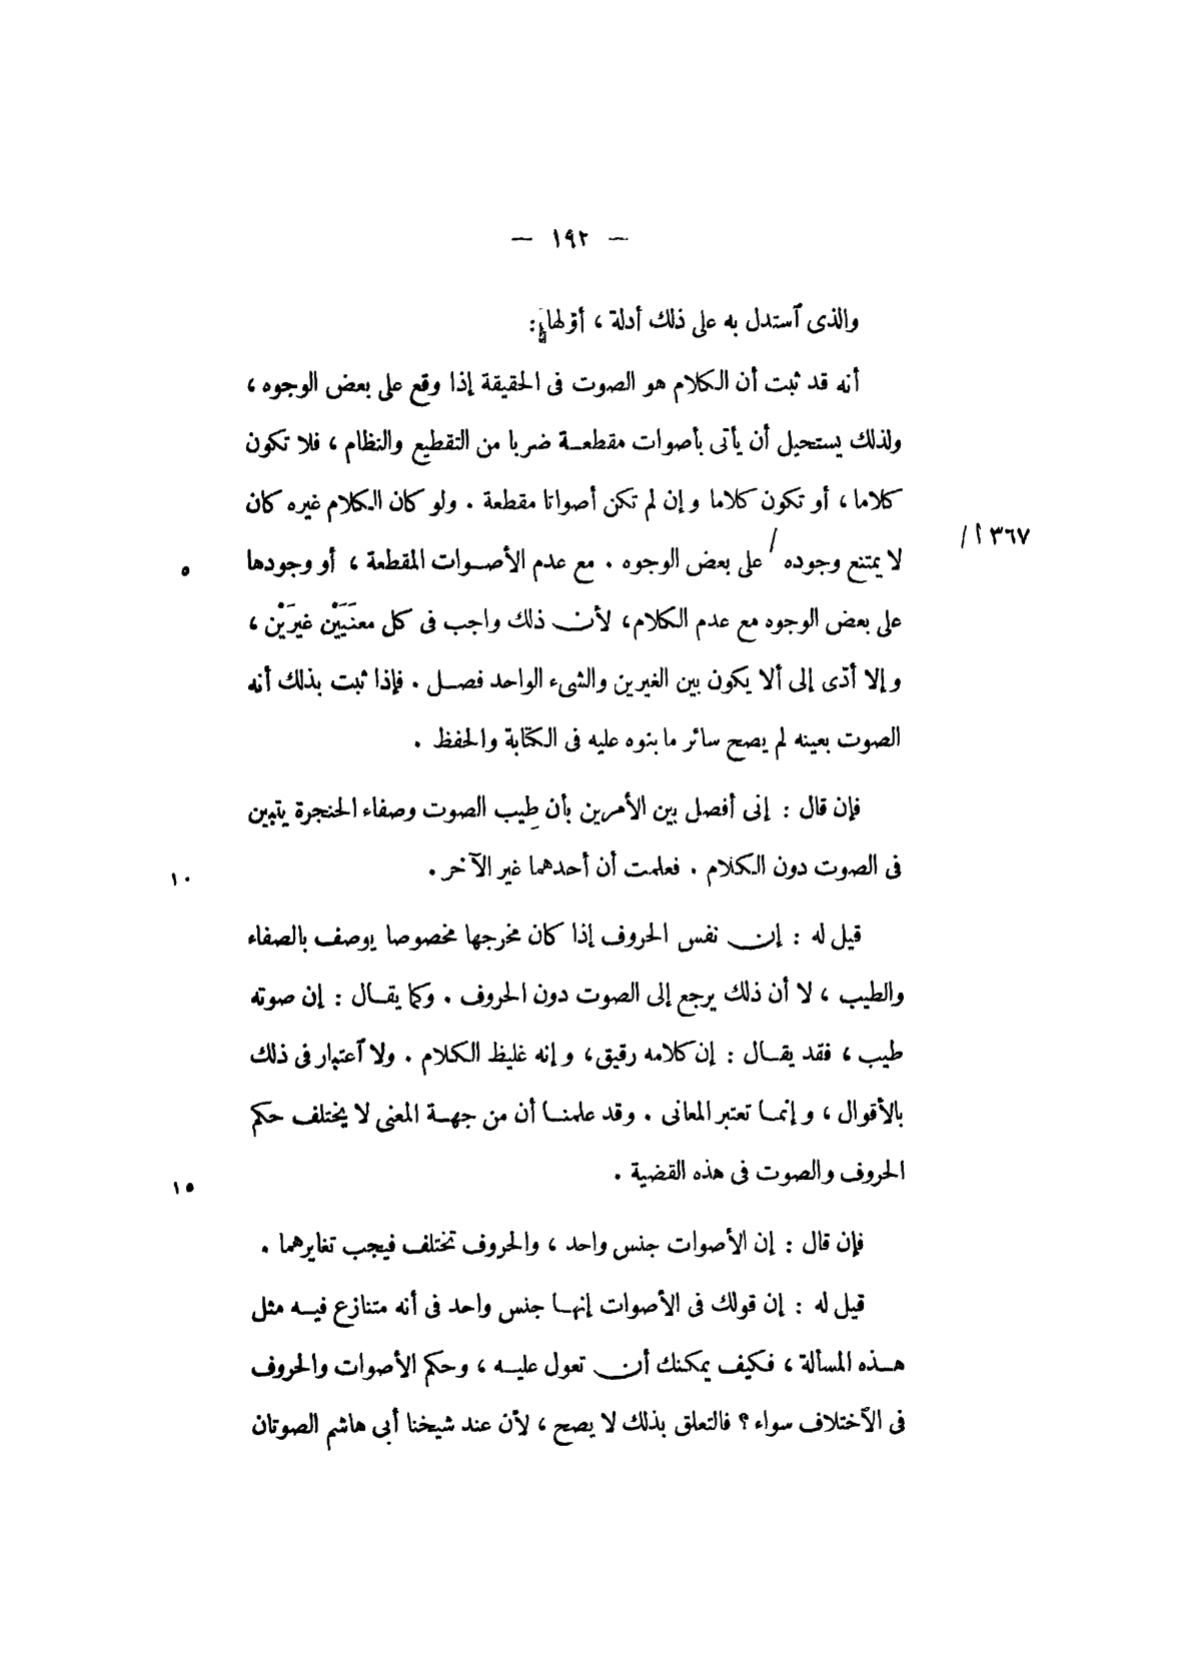 — ١٩٢ —
والذى آستدل به على ذلك أدلة ، أوّلها :
أنه قد ثبت أن الكلام هو الصوت فى الحقيقة إذا وقع على بعض الوجوه ،
ولذلك يستحيل أن يأتى بأصوات مقطعة ضربا من التقطيع والنظام ، فلا تكون
كلاما ، أو تكون كلاما وإن لم تكن أصواتا مقطعة . ولو كان الكلام غيره كان
٣٦٧ أ /
لا يمتنع وجوده / على بعض الوجوه . مع عدم الأصوات المقطعة ، أو وجودها
٥
على بعض الوجوه مع عدم الكلام ، لأن ذلك واجب فى كل معنَيَيْن غيرَيْن ،
وإلا أدّى إلى ألا يكون بين الغيرين والشىء الواحد فصل . فإذا ثبت بذلك أنه
الصوت بعينه لم يصح سائر ما بنوه عليه فى الكتابة والحفظ .
فإن قال : إنى أفصل بين الأمرين بأن طِيب الصوت وصفاء الحنجرة يتبين
فى الصوت دون الكلام . فعلمت أن أحدهما غير الآخر .
١٠
قيل له : إن نفس الحروف إذا كان مخرجها مخصوصا يوصف بالصفاء
والطيب ، لا أن ذلك يرجع إلى الصوت دون الحروف . وكما يقال : إن صوته
طيب ، فقد يقال : إن كلامه رقيق ، وإنه غليظ الكلام . ولا آعتبار فى ذلك
بالأقوال ، وإنما تعتبر المعانى . وقد علمنا أن من جهة المعنى لا يختلف حكم
الحروف والصوت فى هذه القضية .
١٥
فإن قال : إن الأصوات جنس واحد ، والحروف تختلف فيجب تغايرهما .
قيل له : إن قولك فى الأصوات إنها جنس واحد فى أنه متنازع فيه مثل
هذه المسألة ، فكيف يمكنك أن تعول عليه ، وحكم الأصوات والحروف
فى الآختلاف سواء ؟ فالتعلق بذلك لا يصح ، لأن عند شيخنا أبى هاشم الصوتان